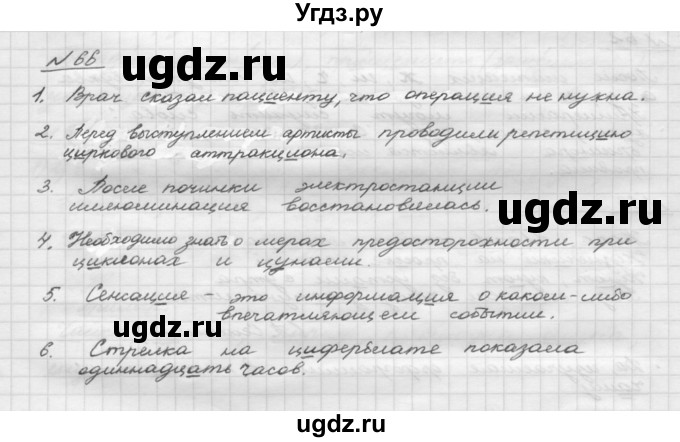 Угдз.ру
N 66
ugdz.ru
1. Врач сказал пациенту, что операция не нужна.
2. Перед выступлением артисты проводили репетицию
циркового аттракциона.
ugdz.ru ugdz.ru
3. После починки электростанции
иллюминация восстановилась.
ugdz.ru
4. Необходимо знать о мерах предосторожности при
циклонах и цунами.
5. Сенсация - это информация о каком-либо
впечатляющем событии.
ugdz.ru ugdz.ru
6. Стрелка на циферблате показала
одиннадцать часов.
ugdz.ru